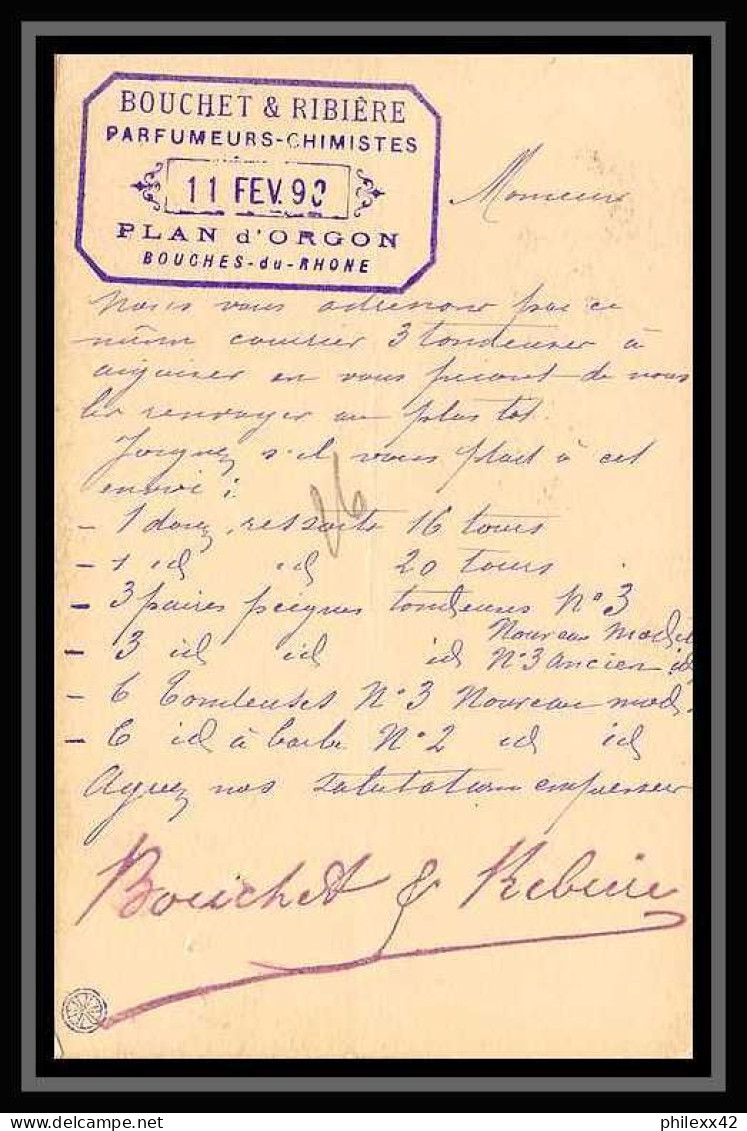 BOUCHET & RIBIÈRE
PARFUMEURS-CHIMISTES
11 FEV. 90
PLAN d'ORGON
BOUCHES-du-RHONE
Monsieur
Nous vous adressons par ce
même courrier 3 tondeuses à
aiguiser en vous priant de nous
les renvoyer au plus tot.
Joignez s'il vous plait à cet
envoi :
- 1 douz. ressorts 16 tours
- 1 id id 20 tours
- 3 paires peignes tondeuses N°3
Nouveau modèle
- 3 id id id N°3 ancien id
- 6 Tondeuses N°3 Nouveau mod.
- 6 id à barbe N°2 id id
Agréez nos salutations empressées
Bouchet & Ribière
philexx42